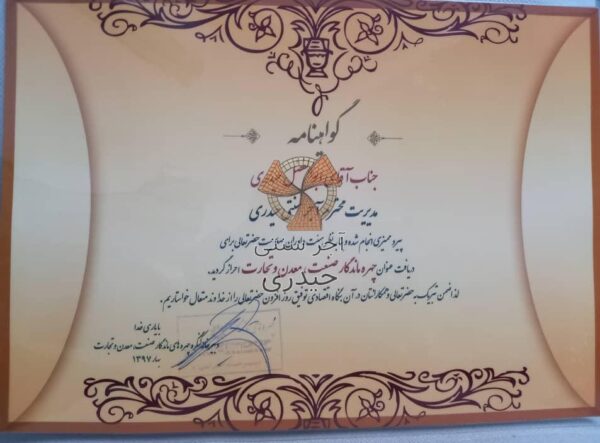 گواهینامه
جناب آقای
مدیریت محترم آجر سنتی حیدری
پیرو ممیزی انجام شده و صلاحیت حضرتعالی برای
دریافت عنوان چهره ماندگار صنعت، معدن و تجارت احراز گردید.
لذا ضمن تبریک به حضرتعالی و همکارانتان در آن بنگاه اقتصادی توفیق روز افزون حضرتعالی را از خداوند متعال خواستاریم.
آجر سنتی
حیدری
با یاری خدا
دبیرخانه کنگره چهره های ماندگار صنعت، معدن و تجارت
بهار ۱۳۹۷